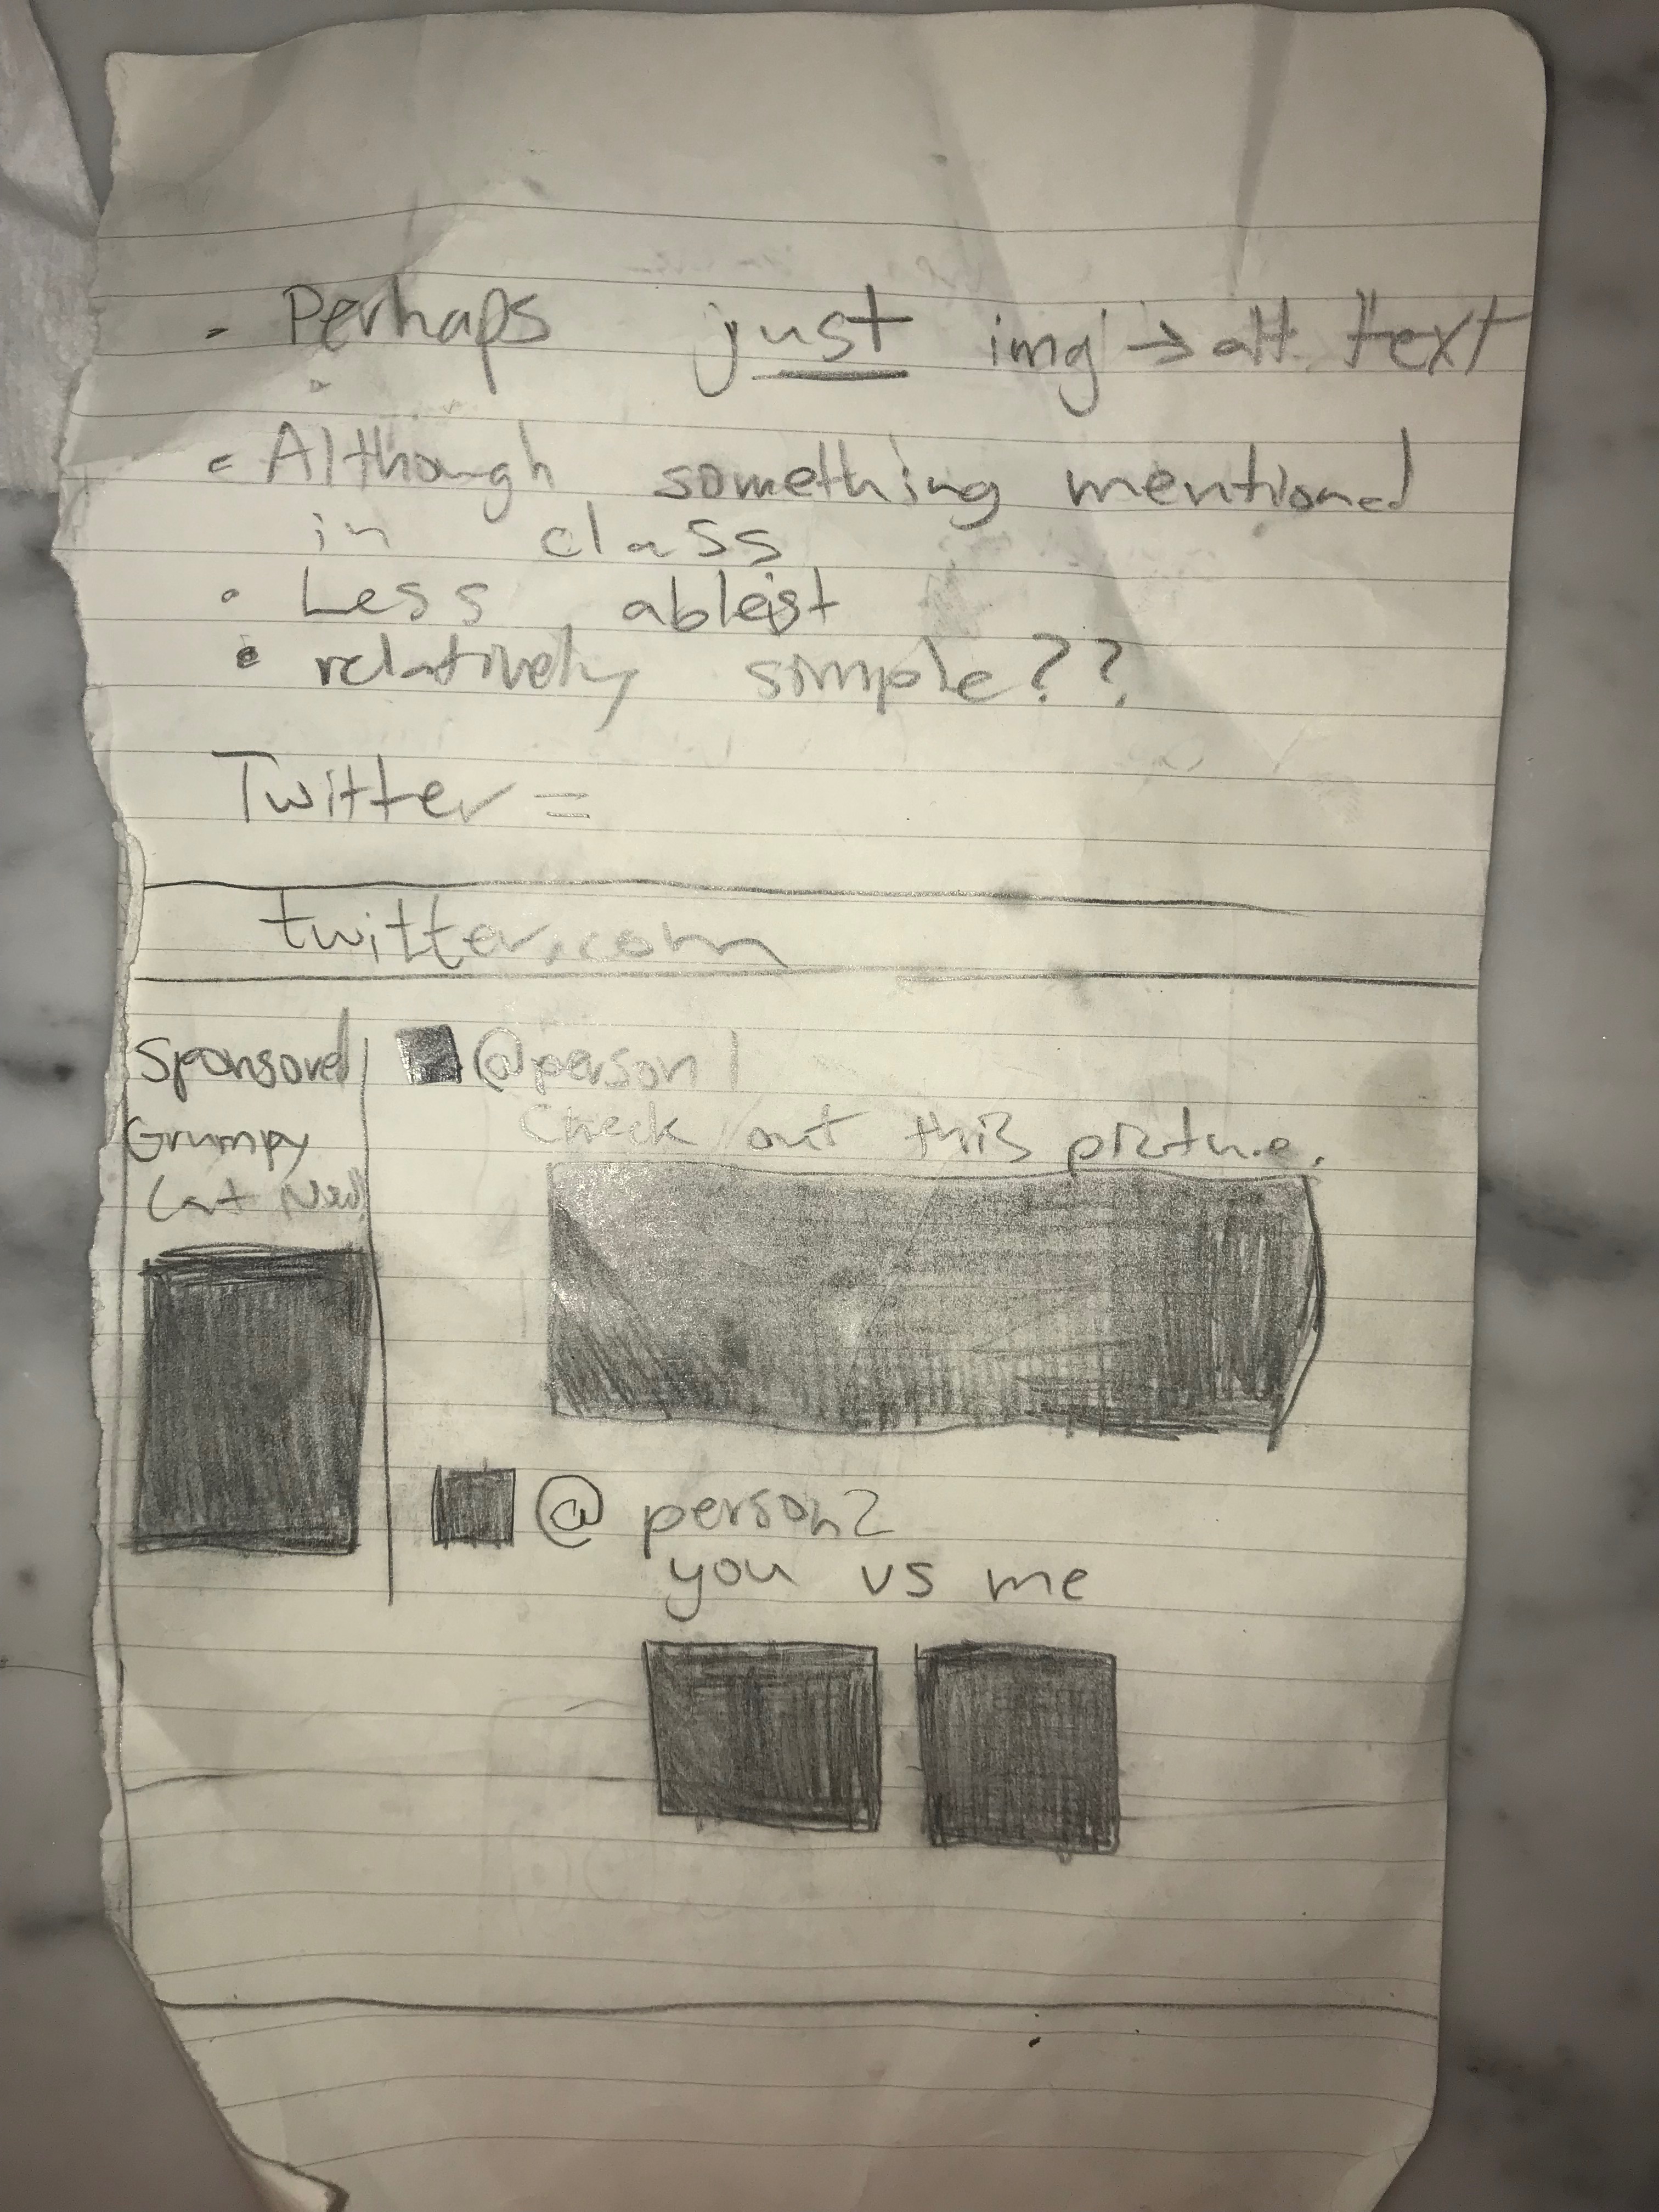 - Perhaps just img → alt text
- Although something mentioned
in class
• Less ableist
• relatively simple??
Twitter =
twitter.com
Sponsored
Grumpy
Cat
@person1
Check out this picture.
@person2
you vs me